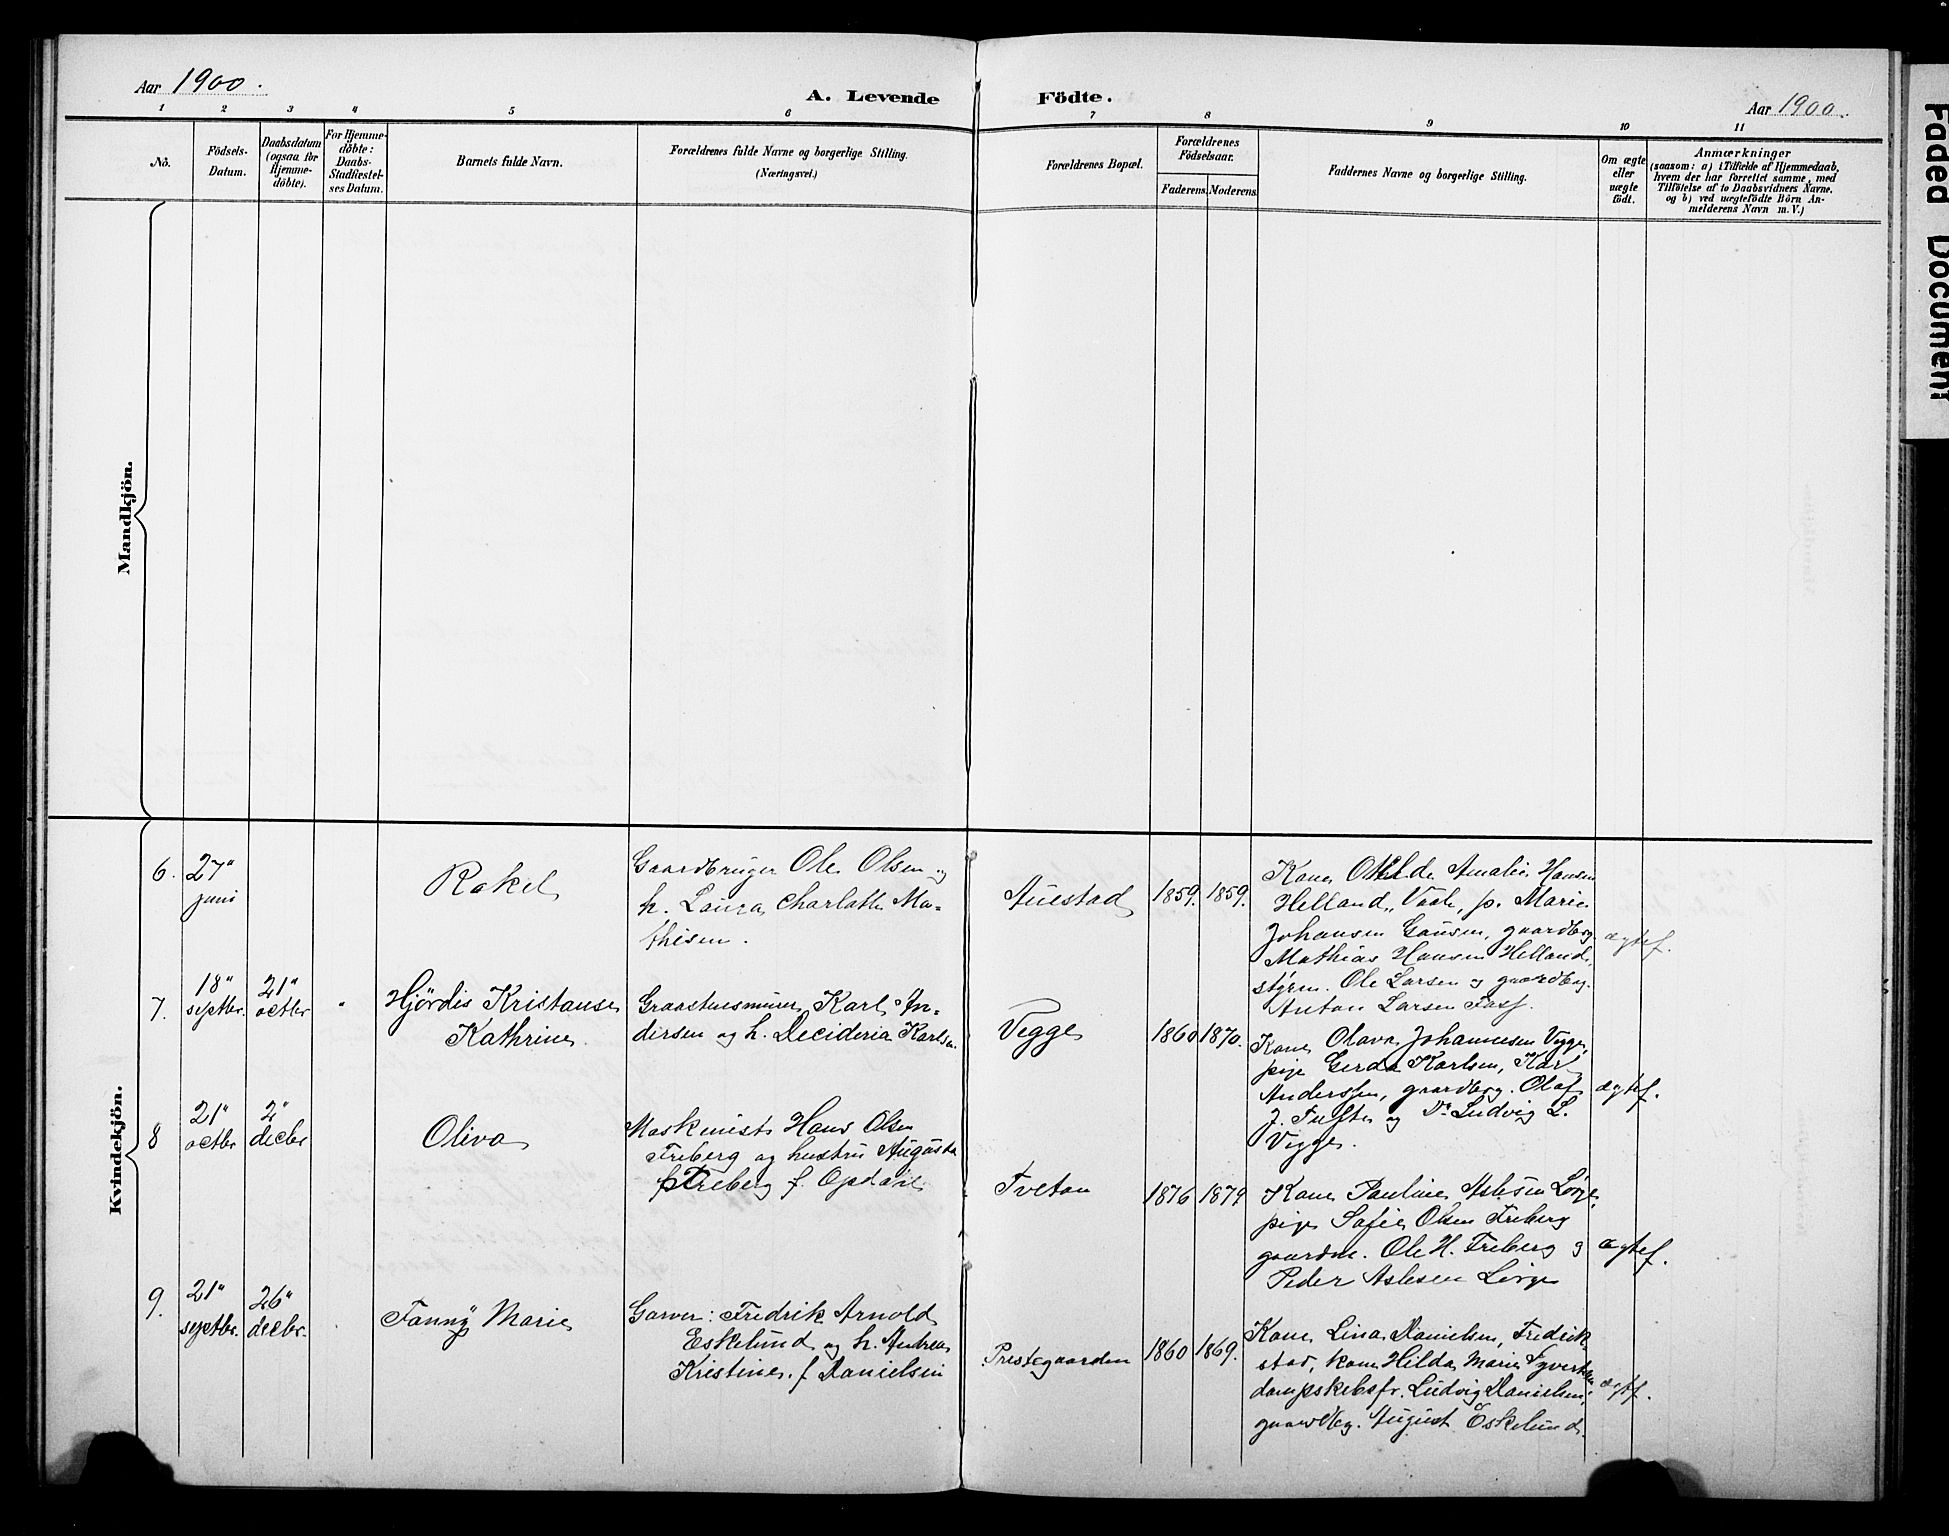 Aar 1900.
A. Levende Födte.
Aar 1900.
1 2 3 4 5 6 7 8 9 10 11
No.
Födsels-
Datum.
Daabsdatum
(ogsaa for
Hjemme-
döbte).
For Hjemme-
döbte:
Daabs-
Stadfæstel-
ses Datum.
Barnets fulde Navn.
Forældrenes fulde Navne og borgerlige Stilling.
(Næringsvei.)
Forældrenes Bopæl.
Forældrenes
Födselsaar.
Faderens. Moderens.
Faddernes Navne og borgerlige Stilling.
Om ægte
eller
uægte
födt.
Anmærkninger
(saasom: a) i Tilfælde af Hjemmedaab,
hvem der har forrettet samme, med
Tilföielse af to Daabsvidners Navne,
og b) ved uægtefödte Börn An-
melderens Navn m. V.)
Mandkjön.
Kvindekjön.
6. 27"
juni
Rakel
Gaardbruger Ole Olsen og
h. Laura Charlotte Ma-
thisen.
Auestad
1859. 1859.
Kone Otilde Amalie Hansen
Helland, Vaale, p. Marie
Johansen Gausen, gaardbrg
Mathias Hansen Helland,
styrm. Ole Larsen og gaardbrg.
Anton Larsen
ægtef.
7. 18"
septbr.
21"
octbr
"
Hjördis Kristanse
Kathrine
Graastensmurer Karl An-
dersen og h. Decideria Karlsen
Vegge
1860 1870.
Kone Olava Johannesen Vegge,
pige Gerda Karlsen, Karl
Anderssen, gaardbrg. Olaf
J. Tufte og Do Ludvig L.
Vegge.
ægtef.
8 21"
octbr
2"
decbr
Oliva
Maskinist Hans Olsen
Freberg og hustru Augusta
Freberg f. Opdal
Tveten
1876 1879
Kone Pauline Aslesen Lørge
pige Sofie Olsen Freberg
gaardm. Ole H. Freberg og
Peder Aslesen Lørge
ægtef.
9. 21"
septbr.
26"
decbr.
Fanny Marie
Garver: Fredrik Arnold
Eskelund og h. Andrea
Kristine f Danielsen
Prestegaarden
1860 1869.
Kone Lina Danielsen, Fredrik
stad, kone Hilda Marie Syvertsen
dampskibsfr. Ludvig Danielsen,
gaardbrg. August Eskelund.
ægtf.
Faded Document